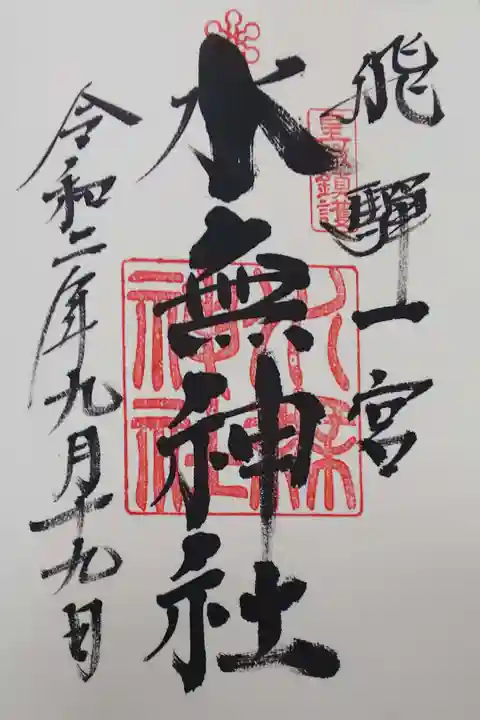 飛騨一宮
水無神社
令和二年九月十九日
水無神社